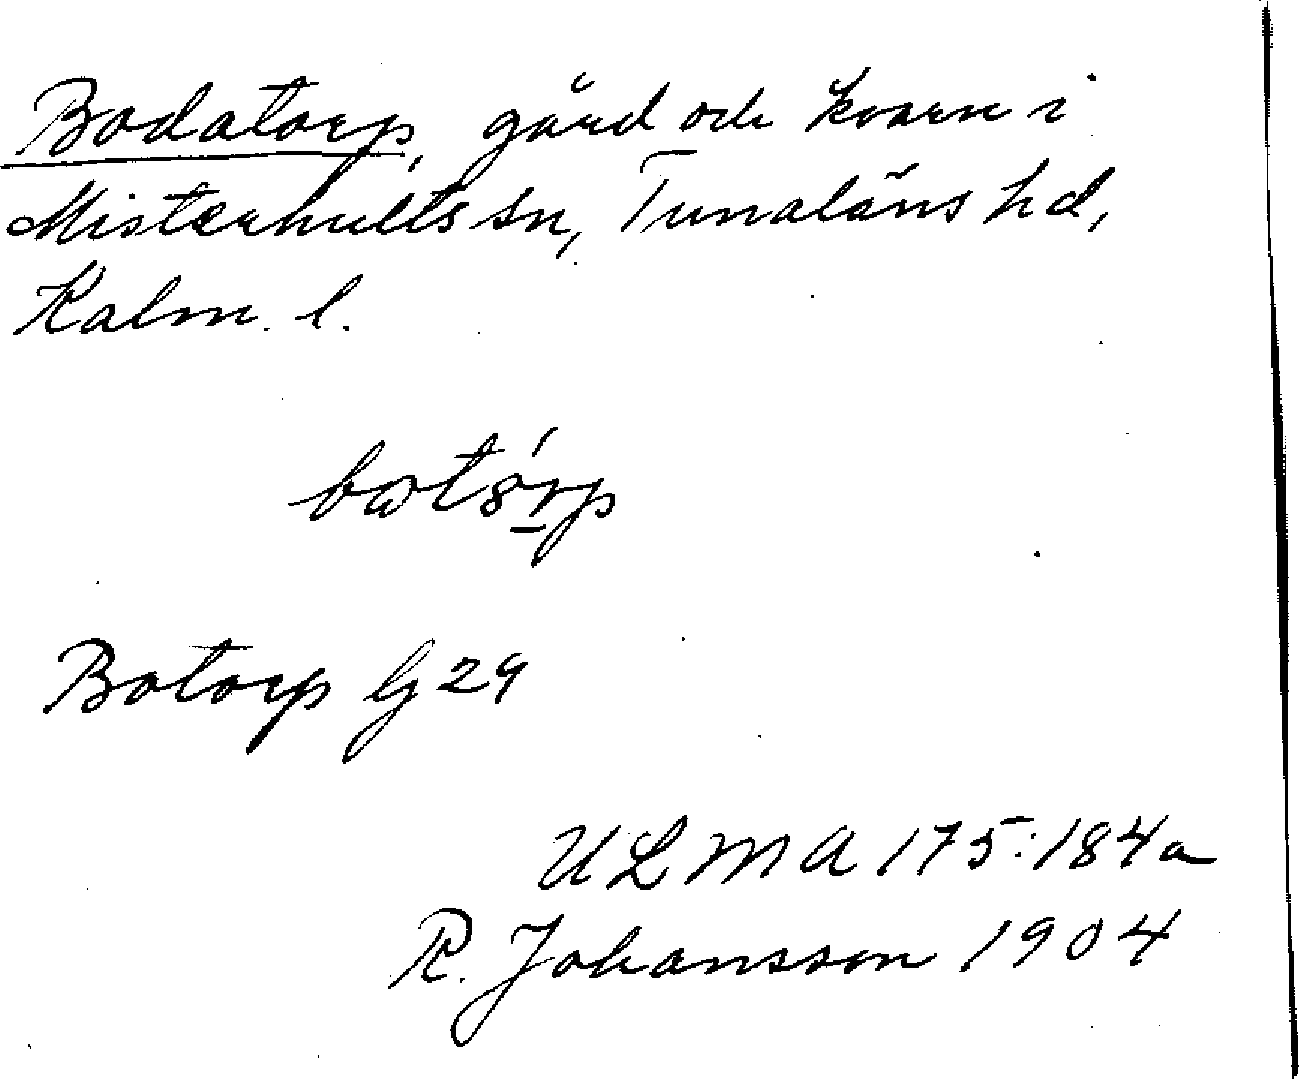 Bodatorp, gård och kvarn i
Misterhults sn, Tunaläns hd,
Kalm. l.
Botorp G 29
ULMA 175:184a
R. Johansson 1904